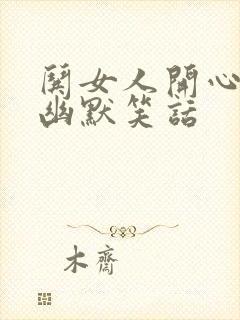 鬨女人開心
幽默笑話
木齋